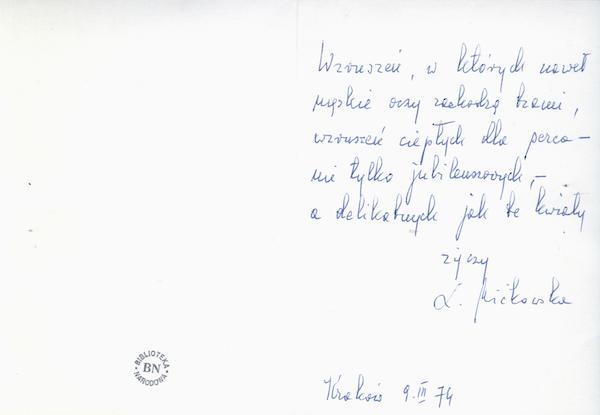 Wzruszeń, w których nawet
męskie oczy zachodzą łzami,
wzruszeń ciepłych dla serca –
nie tylko jubileuszowych, –
a delikatnych jak te kwiaty
życzy
Kraków 9.III 74
BIBLIOTEKA
BN
NARODOWA